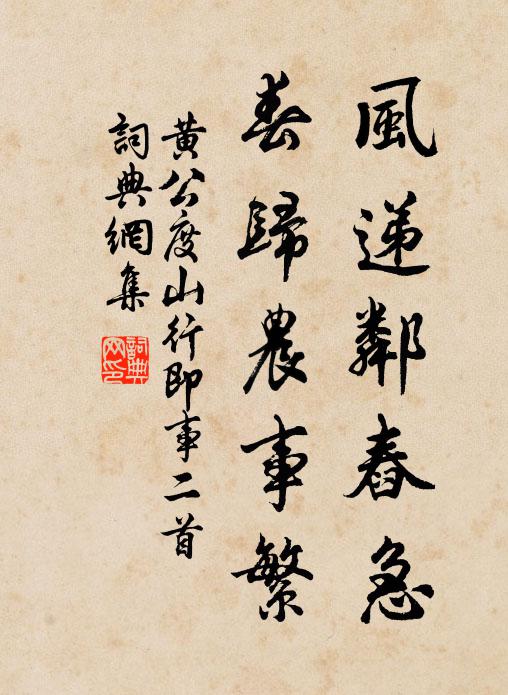 風递鄰舂急
春歸農事繁
黄公度山行即事二首
詞典網集
詞典網印